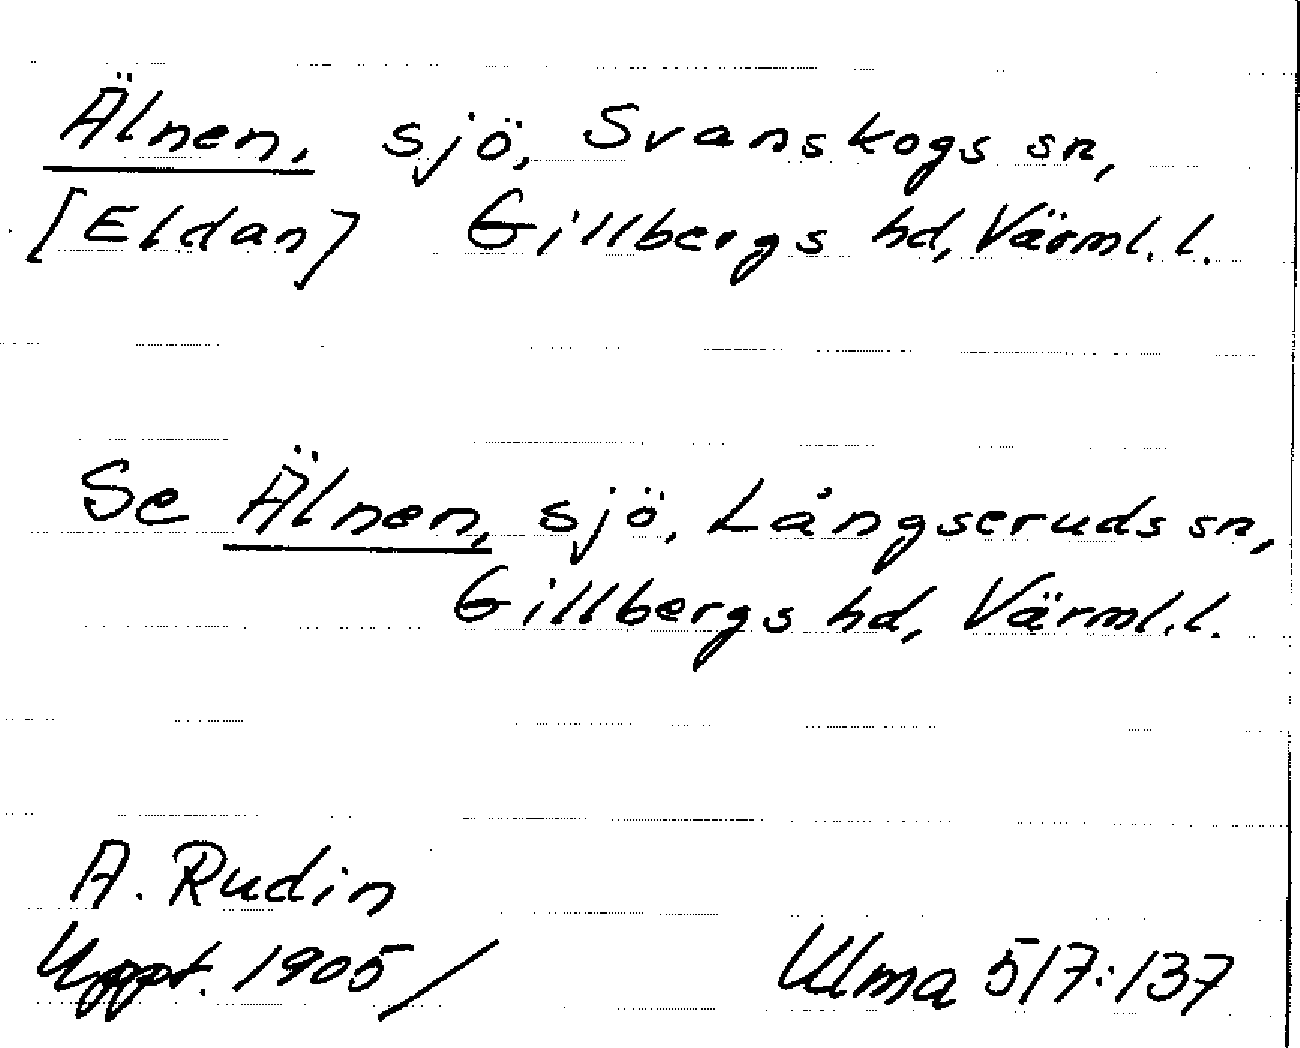 Älnen, sjö, Svanskogs sn,
[Eldan] Gillbergs hd, Värml. l.
Se Älnen, sjö, Långseruds sn,
Gillbergs hd, Värml. l.
A. Rudin
Uppt. 1905/
Ulma 517:137